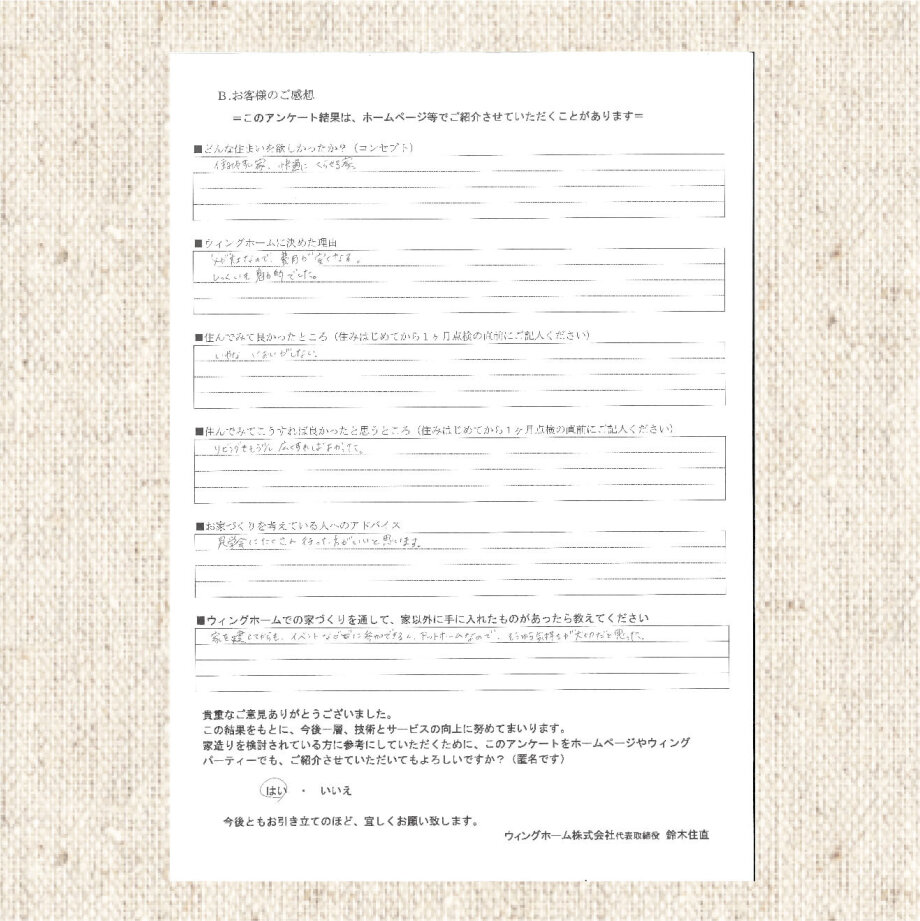 B.お客様のご感想
＝このアンケート結果は、ホームページ等でご紹介させていただくことがあります＝
■どんな住まいを欲しかったか？（コンセプト）
家、快適に くらせる家。
■ウィングホームに決めた理由
なので、費用が安くなる。
しっくいも魅力的でした。
■住んでみて良かったところ（住みはじめてから１ヶ月点検の直前にご記入ください）
いやな においがしない。
■住んでみてこうすれば良かったと思うところ（住みはじめてから１ヶ月点検の直前にご記入ください）
リビングをもう少し 広くすればよかった。
■お家づくりを考えている人へのアドバイス
見学会にたくさん 行った方がいいと思います。
■ウィングホームでの家づくりを通して、家以外に手に入れたものがあったら教えてください
家を建ててからも、イベントなどに参加できるし、アットホームなので、そういう気持ちが大切だと思った。
貴重なご意見ありがとうございました。
この結果をもとに、今後一層、技術とサービスの向上に努めてまいります。
家造りを検討されている方に参考にしていただくために、このアンケートをホームページやウィング
パーティーでも、ご紹介させていただいてもよろしいですか？（匿名です）
はい ・ いいえ
今後ともお引き立てのほど、宜しくお願い致します。
ウィングホーム株式会社代表取締役 鈴木住直